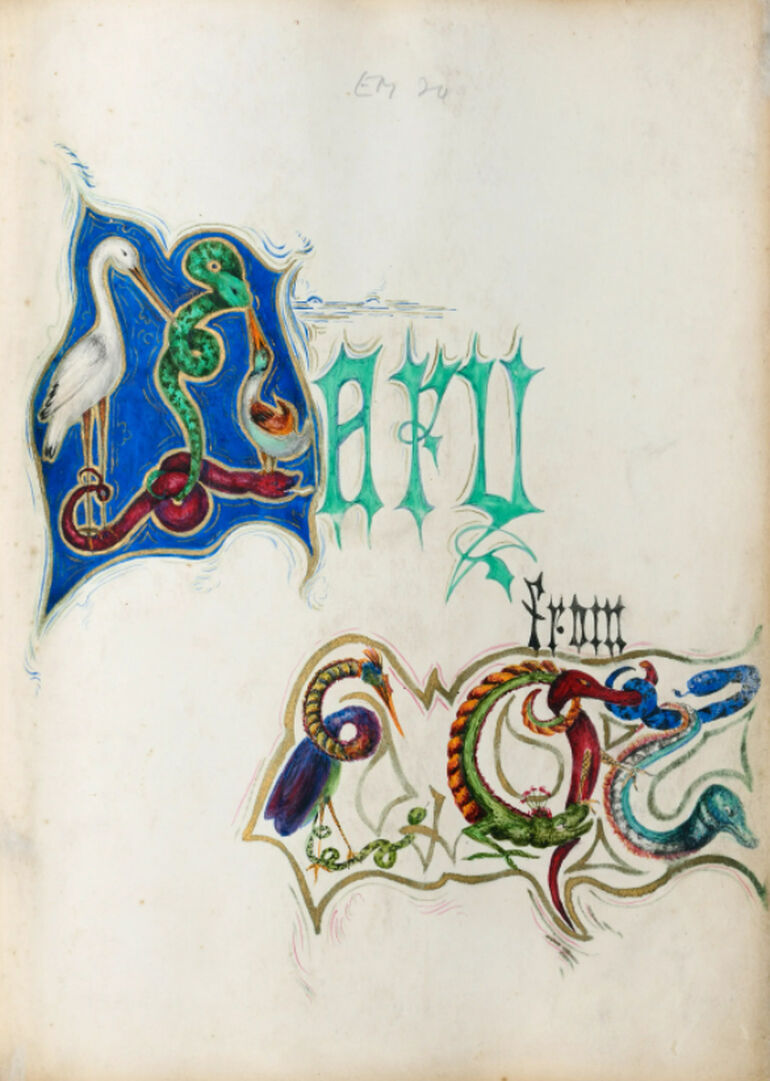 EM 20
Mary
from